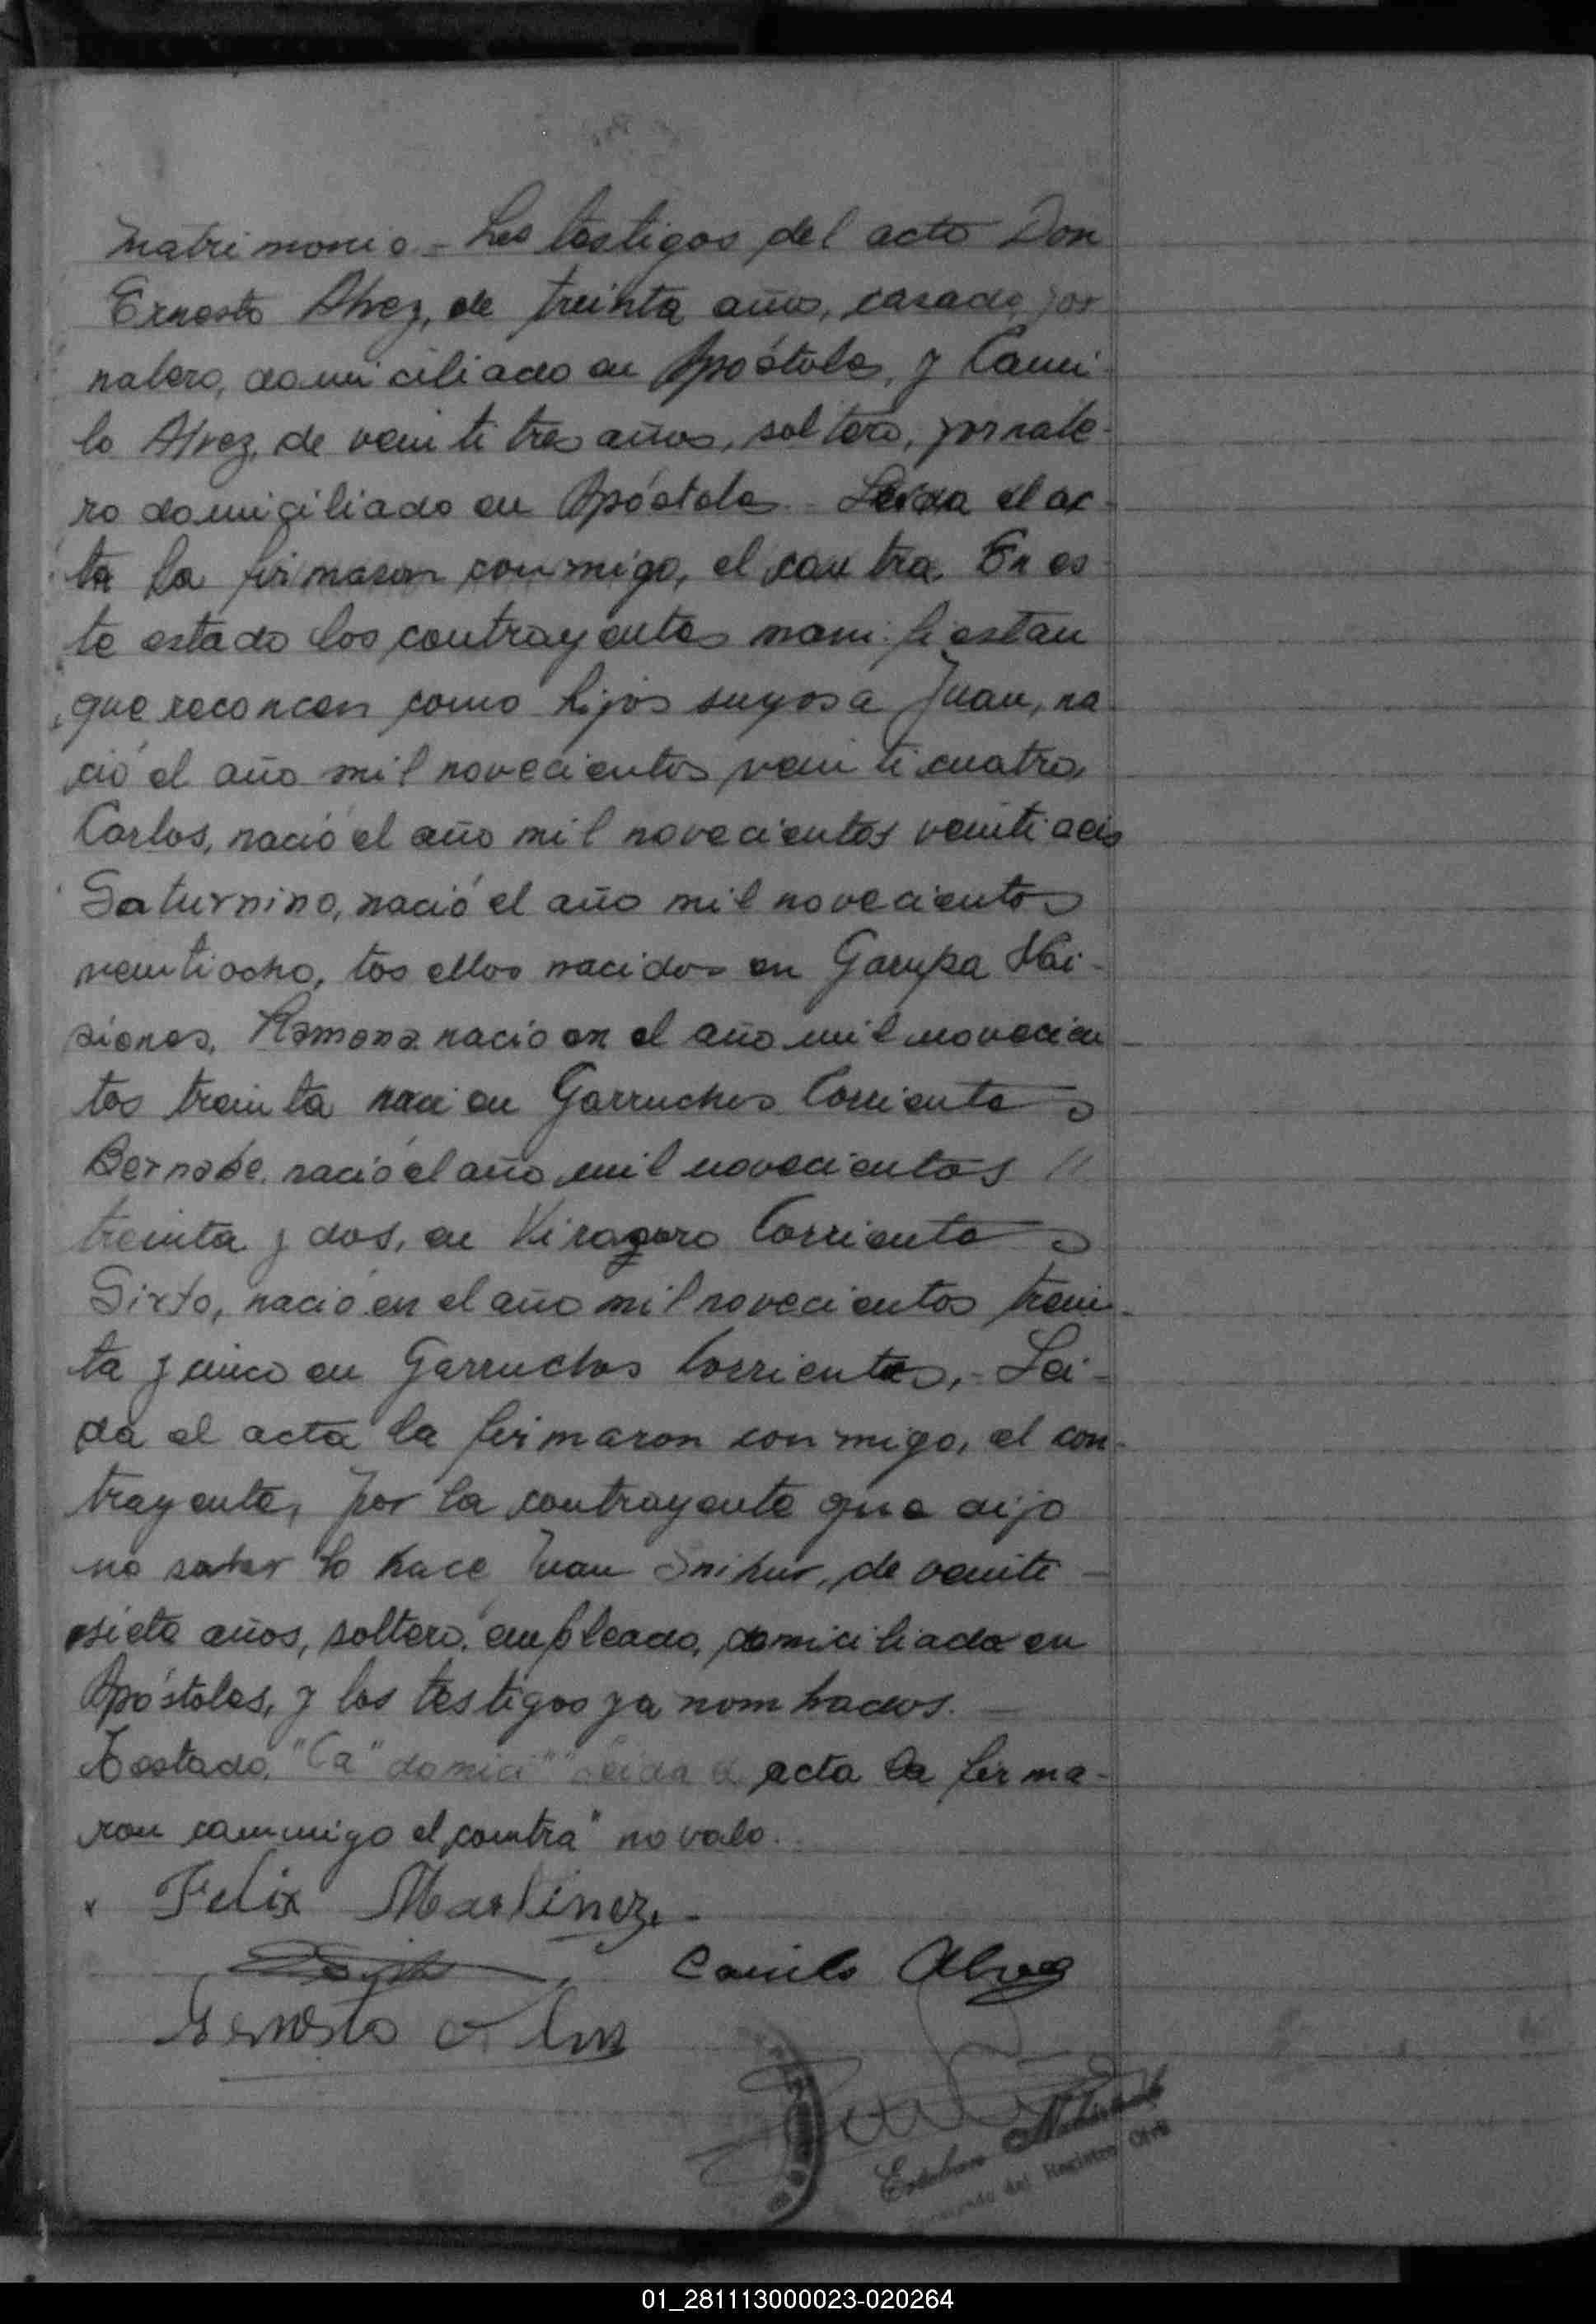 matrimonio - Los testigos del acto Don
Ernesto Alvez, de treinta años, casado, jor
nalero, domiciliado en Apóstoles, y Cami-
lo Alvez, de veintitres años, soltero, jornale-
ro domiciliado en Apóstoles - Leida el ac-
ta la firmaron conmigo, el contra. En es
te estado los contrayentes manifiestan
que reconcen como hijos suyos a Juan, na
ció el año mil novecientos veinticuatro,
Carlos, nació el año mil novecientos veintiseis
Saturnino, nació el año mil novecientos
veintiocho, tos ellos nacidos en Garupa Mi-
siones, Ramona nacio en el año mil novecien
tos treinta naci en Garruchos Corrientes
Bernabe, nació el año mil novecientos //
treinta y dos, en Virasoro Corrientes
Sixto, nació en el año mil novecientos trein-
ta y cinco en Garruchos Corrientes, - Lei-
da el acta la firmaron conmigo, el con-
trayente, por la contrayente que dijo
no saber lo hace Juan de veinti-
siete años, soltero, empleado, domiciliado en
Apóstoles, y los testigos ya nombrados. -
Testado, "Ca" "domici" "Leida el acta la firma-
ron conmigo el contra" no vale.
x Felix Martinez
Camilo Alvez
Ernesto Alvez
Esteban
del Registro Civil
01_281113000023-020264